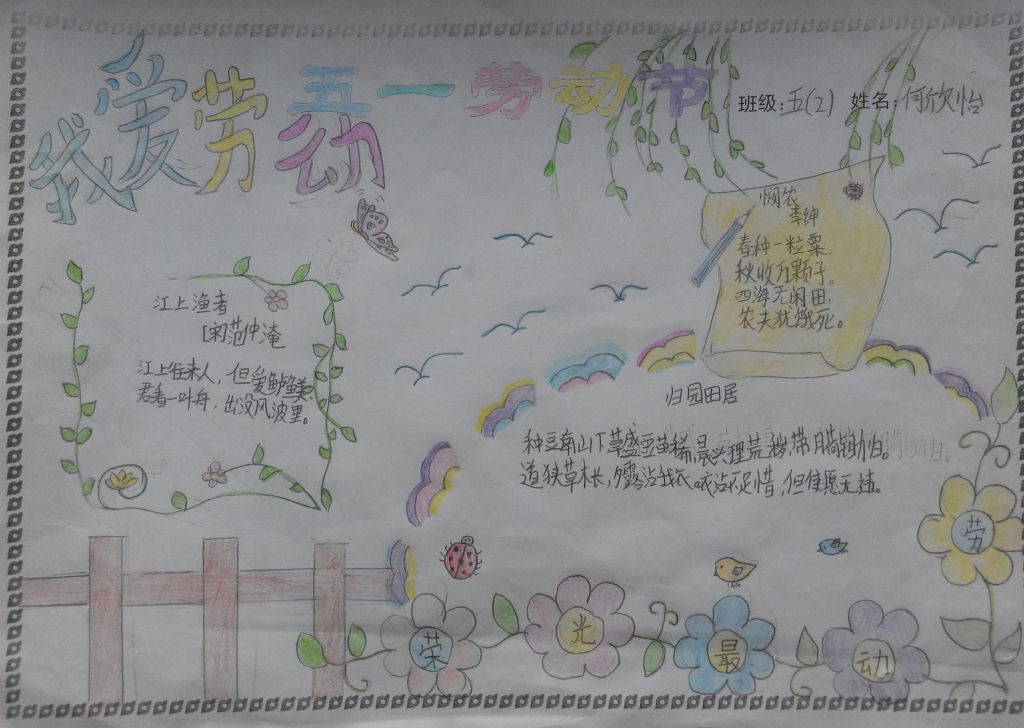 我爱劳动
五一劳动节
班级:五(2) 姓名:何欣怡
悯农
李绅
春种一粒粟,
秋收万颗子。
四海无闲田,
农夫犹饿死。
江上渔者
[宋]范仲淹
江上往来人,但爱鲈鱼美。
君看一叶舟,出没风波里。
归园田居
种豆南山下草盛豆苗稀,晨兴理荒秽,带月荷锄归。
道狭草木长,夕露沾我衣。衣沾不足惜,但使愿无违。
劳
动
最
光
荣